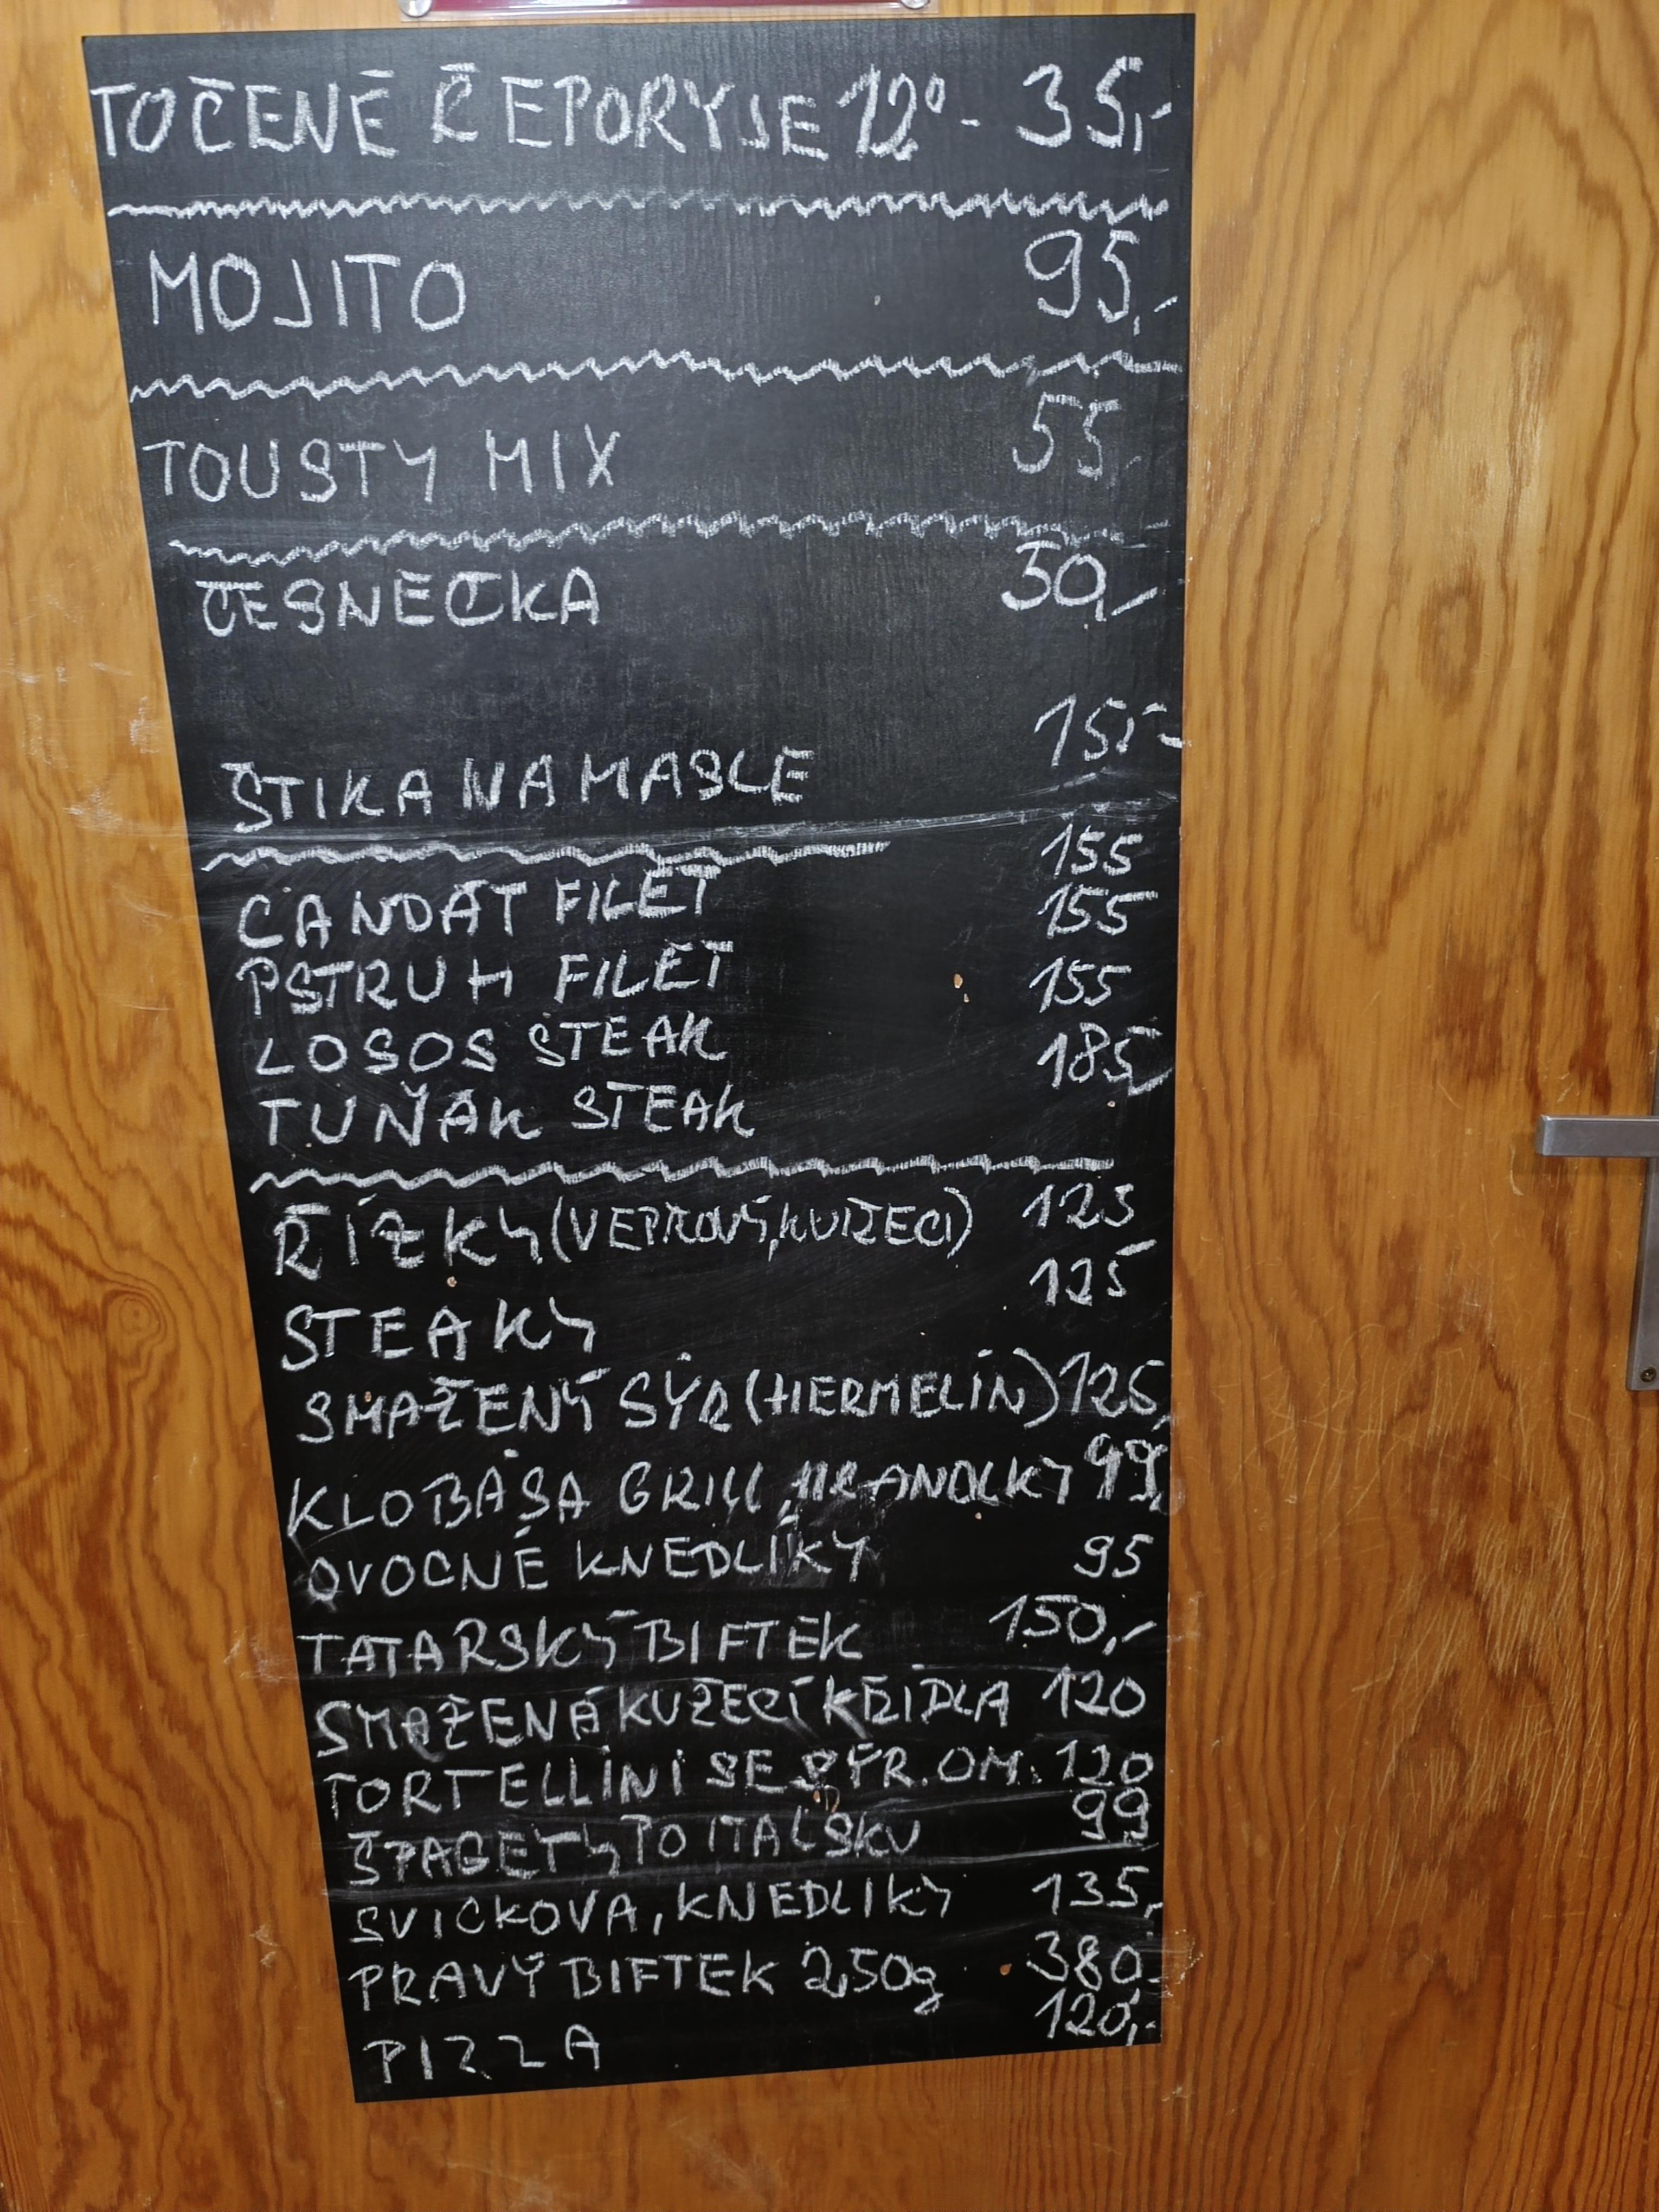 TOČENÉ ŘEPORYJE 12° - 35,-
MOJITO 95,-
TOUSTY MIX 55,-
ČESNEČKA 30,-
ŠTIKA NA MASLE 155-
CANDÁT FILET 155
PSTRUH FILET 155
LOSOS STEAK 155
TUŇÁK STEAK 185,-
ŘÍZKY (VEPŘOVÝ, KUŘECI) 125
STEAKY 125
SMAŽENÝ SÝR (HERMELÍN) 125,
KLOBÁSA GRILL, HRANOLKY 99,
OVOCNÉ KNEDLÍKY 95
TATARSKÝ BIFTEK 150,-
SMAŽENÁ KUŘECÍ KŘIDLA 120
TORTELLINI SE SÝR. OM. 120
ŠPAGETY PO ITALSKU 99
SVICKOVA, KNEDLIKY 135,-
PRAVÝ BIFTEK 250g 380,-
PIZZA 120,-